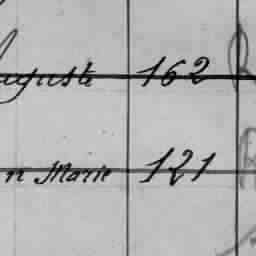 Auguste 162
n Marie 121